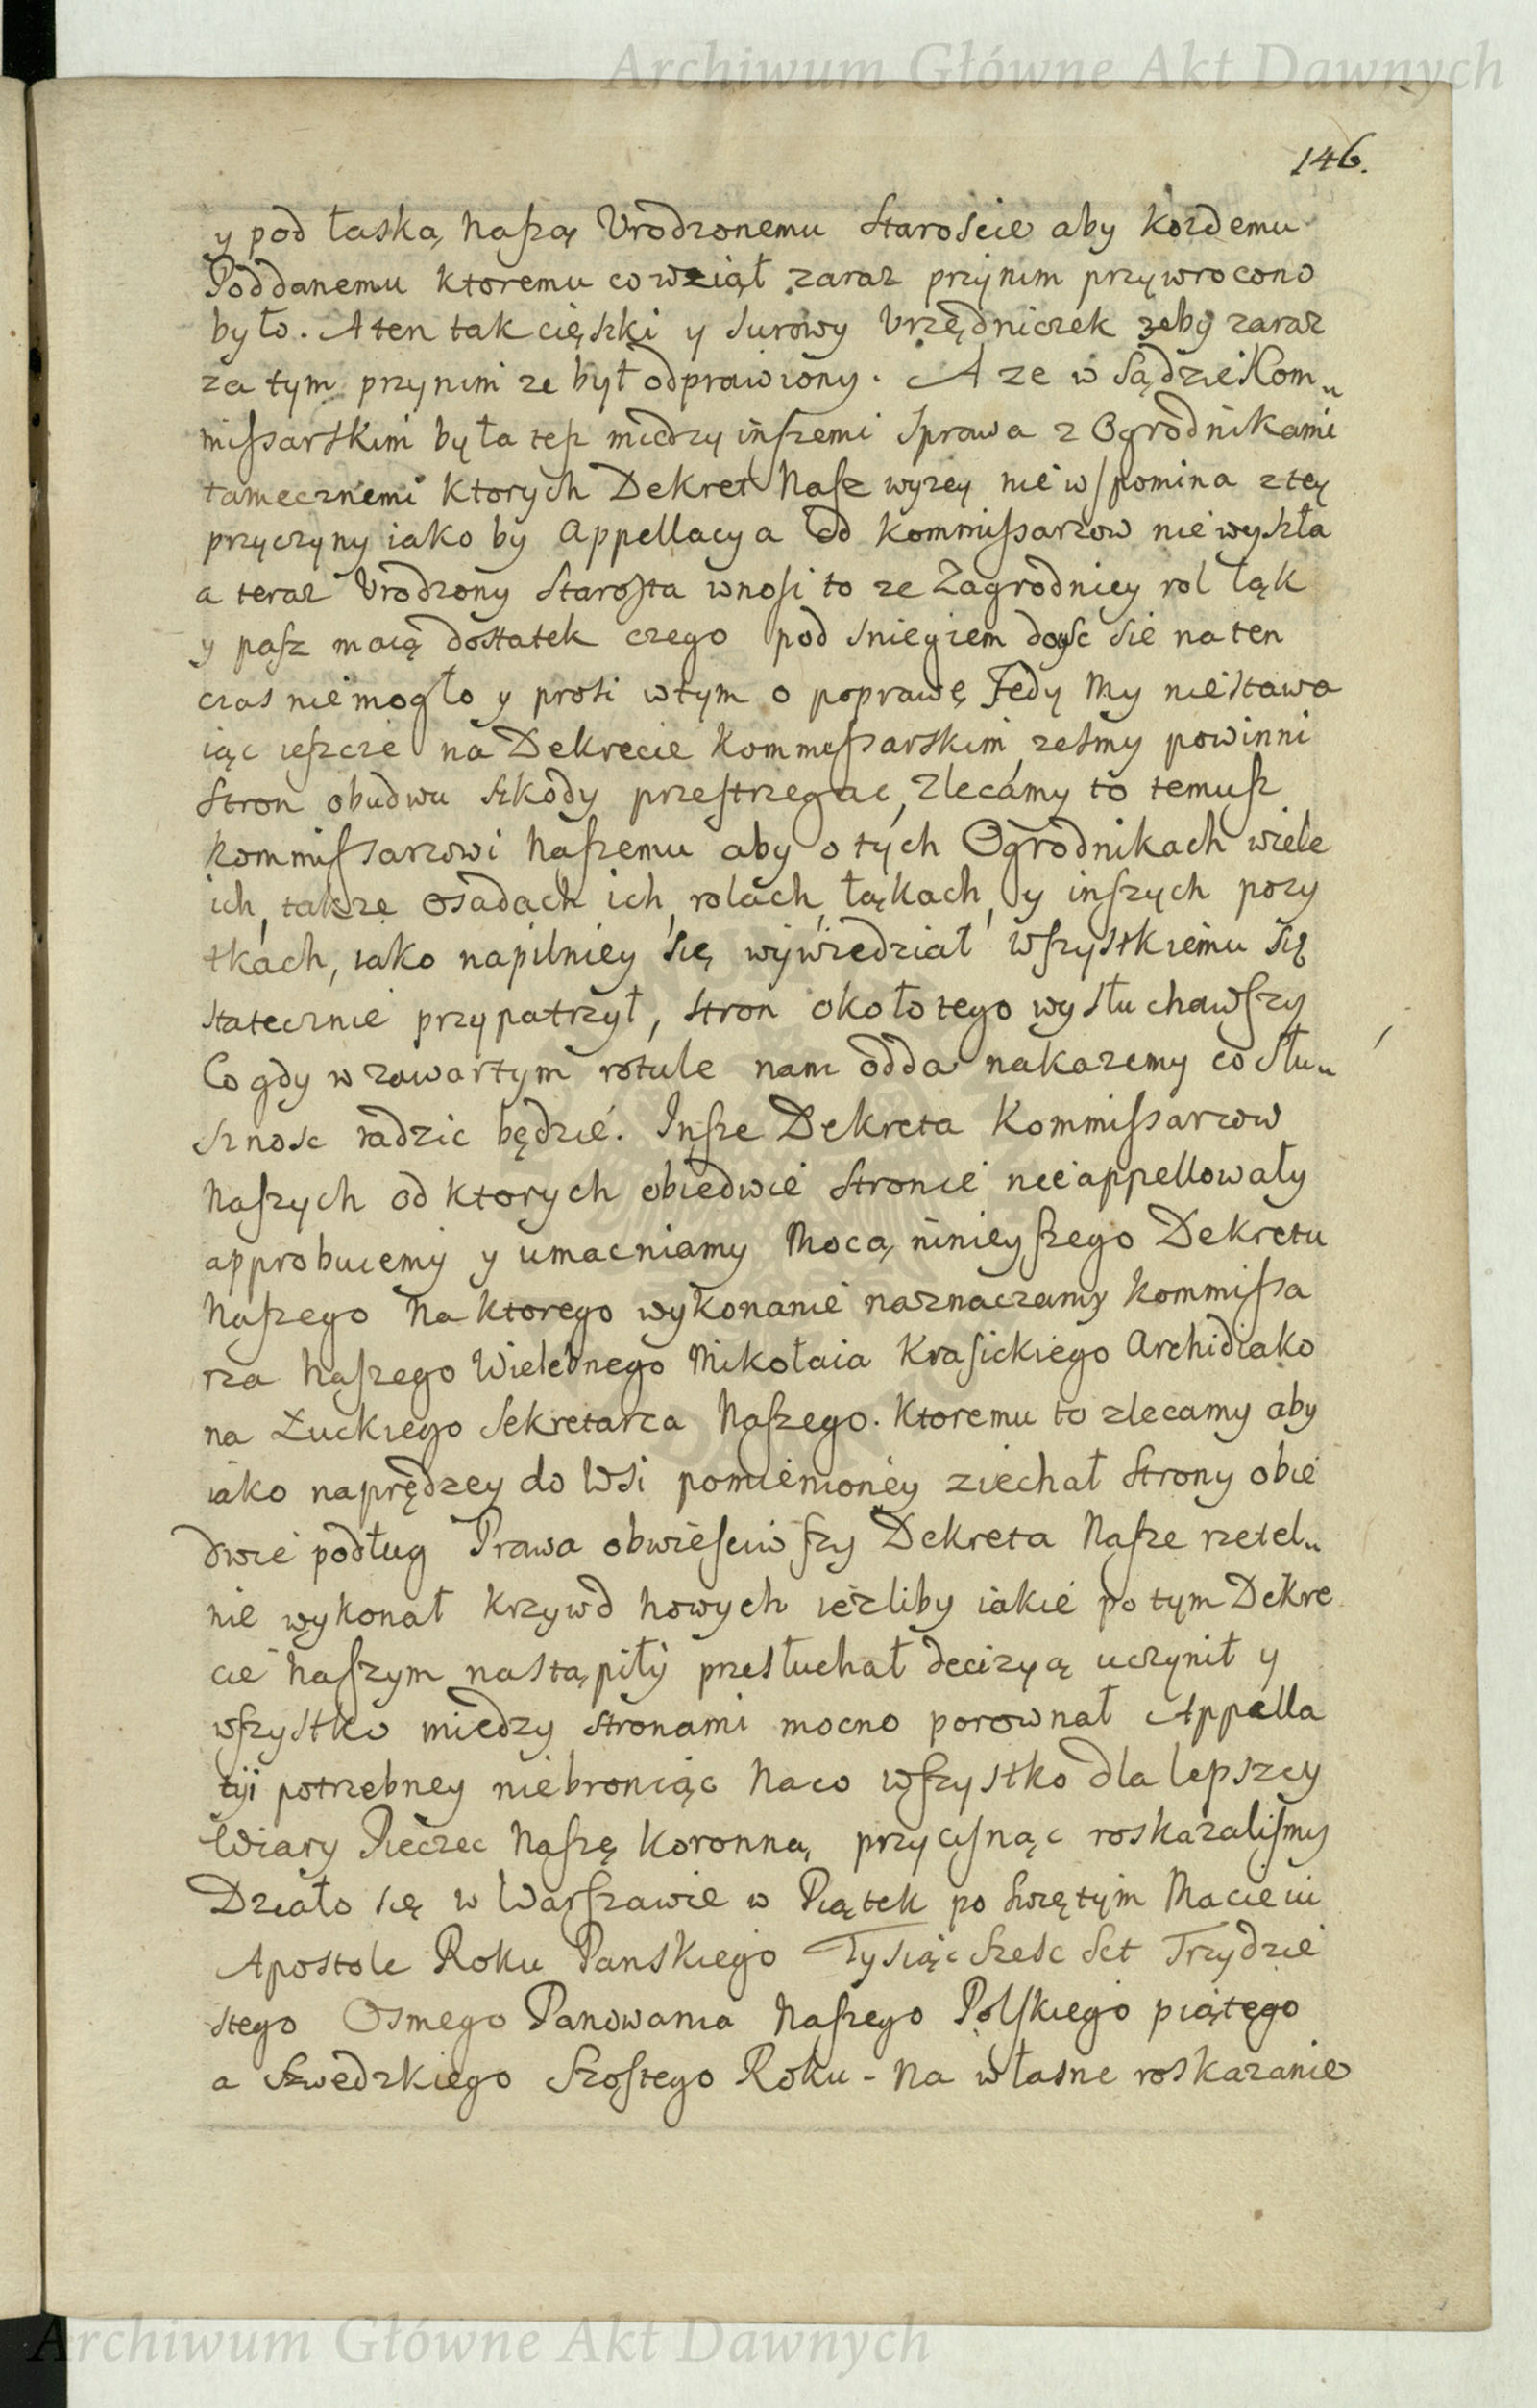 Archiwum Główne Akt Dawnych
146.
y pod łaską Naszą Vrodzonemu Staroscie aby kozdemu
Poddanemu ktoremu co wziął zaraz przynim przywrocono
było. A ten tak cięszki y surowy Vrzędniczek zeby zaraz
za tym przynim ze był odprawiony. A ze w Sądzie Kom„
missarskim była tesz miedzy inszemi sprawa z Ogrodnikami
tamecznemi ktorych Dekret Nasz wyzey nie wspomina z tey
przyczyny iako by Appellacya od Kommissarzow nie wyszła
a teraz Vrodzony Starosta wnosi to ze Zagrodnicy rol łąk
y pasz maią dostatek czego pod sniegiem doysc sie na ten
czas nie mogło y prosi w tym o poprawę Tedy My nie stawa
iąc ieszcze na Dekrecie Kommissarskim zesmy powinni
Stron obudwu szkody przestrzegac, Zlecamy to temusz
Kommissarzowi Naszemu aby o tych Ogrodnikach wiele
ich, takze osadach ich, rolach, łąkach, y inszych pozy
tkach, iako napilniey się wywiedział wszystkiemu się
statecznie przypatrzył, stron około tego wysłuchawszy
Co gdy w zawartym rotule nam odda nakazemy co słu„
sznosc radzic będzie. Insze Dekreta Kommissarzow
Naszych od ktorych obiedwie stronie nie appellowały
approbuiemy y umacniamy Mocą ninieyszego Dekretu
Naszego Na ktorego wykonanie naznaczamy Kommissa
rza Naszego Wielebnego Mikołaia Krasickiego Archidiako
na Łuckiego Sekretarza Naszego. Ktoremu to zlecamy aby
iako naprędzey do Wsi pomienioney ziechał Strony obie
dwie podług Prawa obwiesciwszy Dekreta Nasze rzetel„
nie wykonał Krzywd nowych iezliby iakie po tym Dekre
cie Naszym nastąpiły przesłuchał decizyą uczynił y
wszystko miedzy stronami mocno porownał Appella
tyi potrzebney nie broniąc Na co wszystko dla lepszey
Wiary Pieczec Naszę Koronną przycisnąc roskazalismy
Działo się w Warszawie w Piątek po Swiętym Macieiu
Apostole Roku Panskiego Tysiąc Szesc Set Trzydzie
stego Osmego Panowania Naszego Polskiego piątego
a Szwedzkiego Szostego Roku - Na własne roskazanie
Archiwum Główne Akt Dawnych